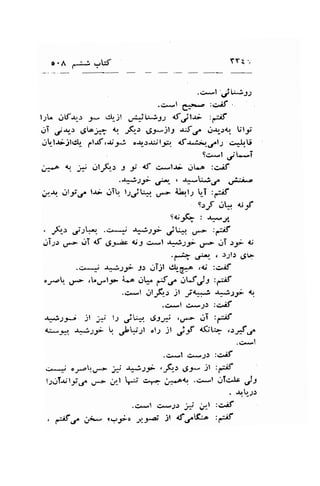 ۳۳۴    کتاب ششم ۵۰۸
روشنائی است.
گفت: صحیح است.
گفتم: خدائی که روشنائیش ازیك سو دیدگان مارا
توانا بدیدن می‌کند وازسوی دیگر به چیزهای دیدنی آن
قابلیت رامی‌بخشدکه بتوانند دیده شوند، کدام یك ازخدایان
آسمانی است؟
گفت: همان خداست که تو و دیگران نیز به همین
صفتش می‌شناسید ، یعنی خورشید.
گفتم: آیا رابطۀ حس بینائی را بآن خدا می‌توان بدین
گونه بیان کرد؟
پرسید : چگونه؟
گفتم: حس بینائی خورشید نیست. بعبارتی دیگر ،
نه خود آن حس خورشید است ونه عضوی که آن حس درآن
جای دارد ، یعنی چشم.
گفت: نه، هیچیك ازآن دو خورشید نیست.
گفتم: ولی گمان می‌کنم میان همۀ حواس‌ما، حس باصره
به خورشید شبیه‌تر از دیگران است.
گفت: درست است.
گفتم: آن حس، نیروی بینائی را نیز از خورشید
می‌گیرد، چنانکه گوئی از راه ارتباطی با خورشید پیوسته
است.
گفت: درست است.
گفتم: از سوی دیگر، خورشید نیز حس‌باصره نیست
ولی علت‌آن است. به‌همین جهت تنها این حس می‌تواندآن‌را
دریابد .
گفت: این نیز درست است.
گفتم: هنگامی‌که از تصویر «خوب» سخن می‌گفتم ،